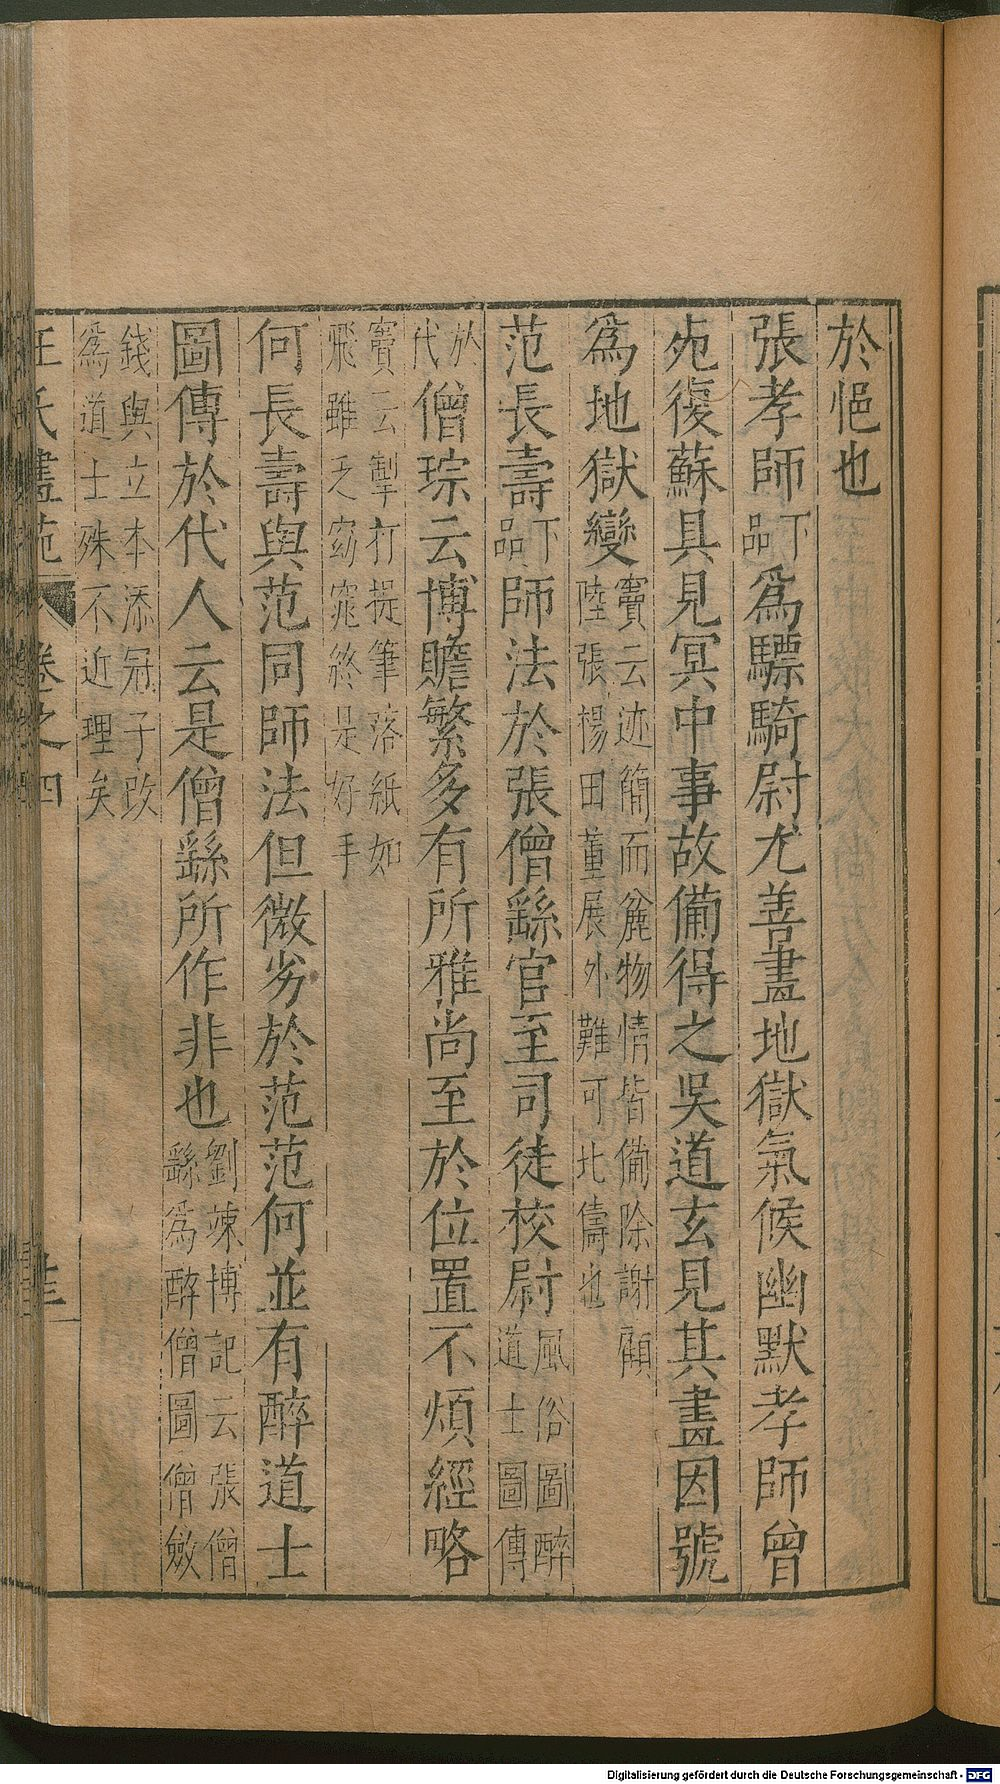 於悒也
張孝師下品為驃騎尉尤善畫地獄氣候幽默孝師曾
死復蘇具見冥中事故備得之吳道玄見其畫因號
為地獄變竇云迹簡而麄物情皆備除謝顧陸張楊田董展外難可比儔也
范長壽下品師法於張僧繇官至司徒校尉風俗圖醉道士圖傳
於代僧琮云博贍繁多有所雅尚至於位置不煩經略
竇云掣打提筆落紙如飛雖乏窈窕終是好手
何長壽與范同師法但微劣於范范何並有醉道士
圖傳於代人云是僧繇所作非也劉竦博記云張僧繇為醉僧圖僧斂
錢與立本添冠子改為道士殊不近理矣
王氏畫苑 卷之四
Digitalisierung gefördert durch die Deutsche Forschungsgemeinschaft - DFG